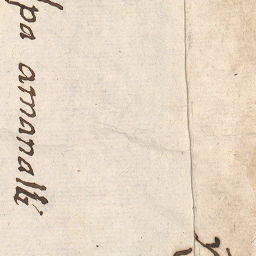 pa amanalli